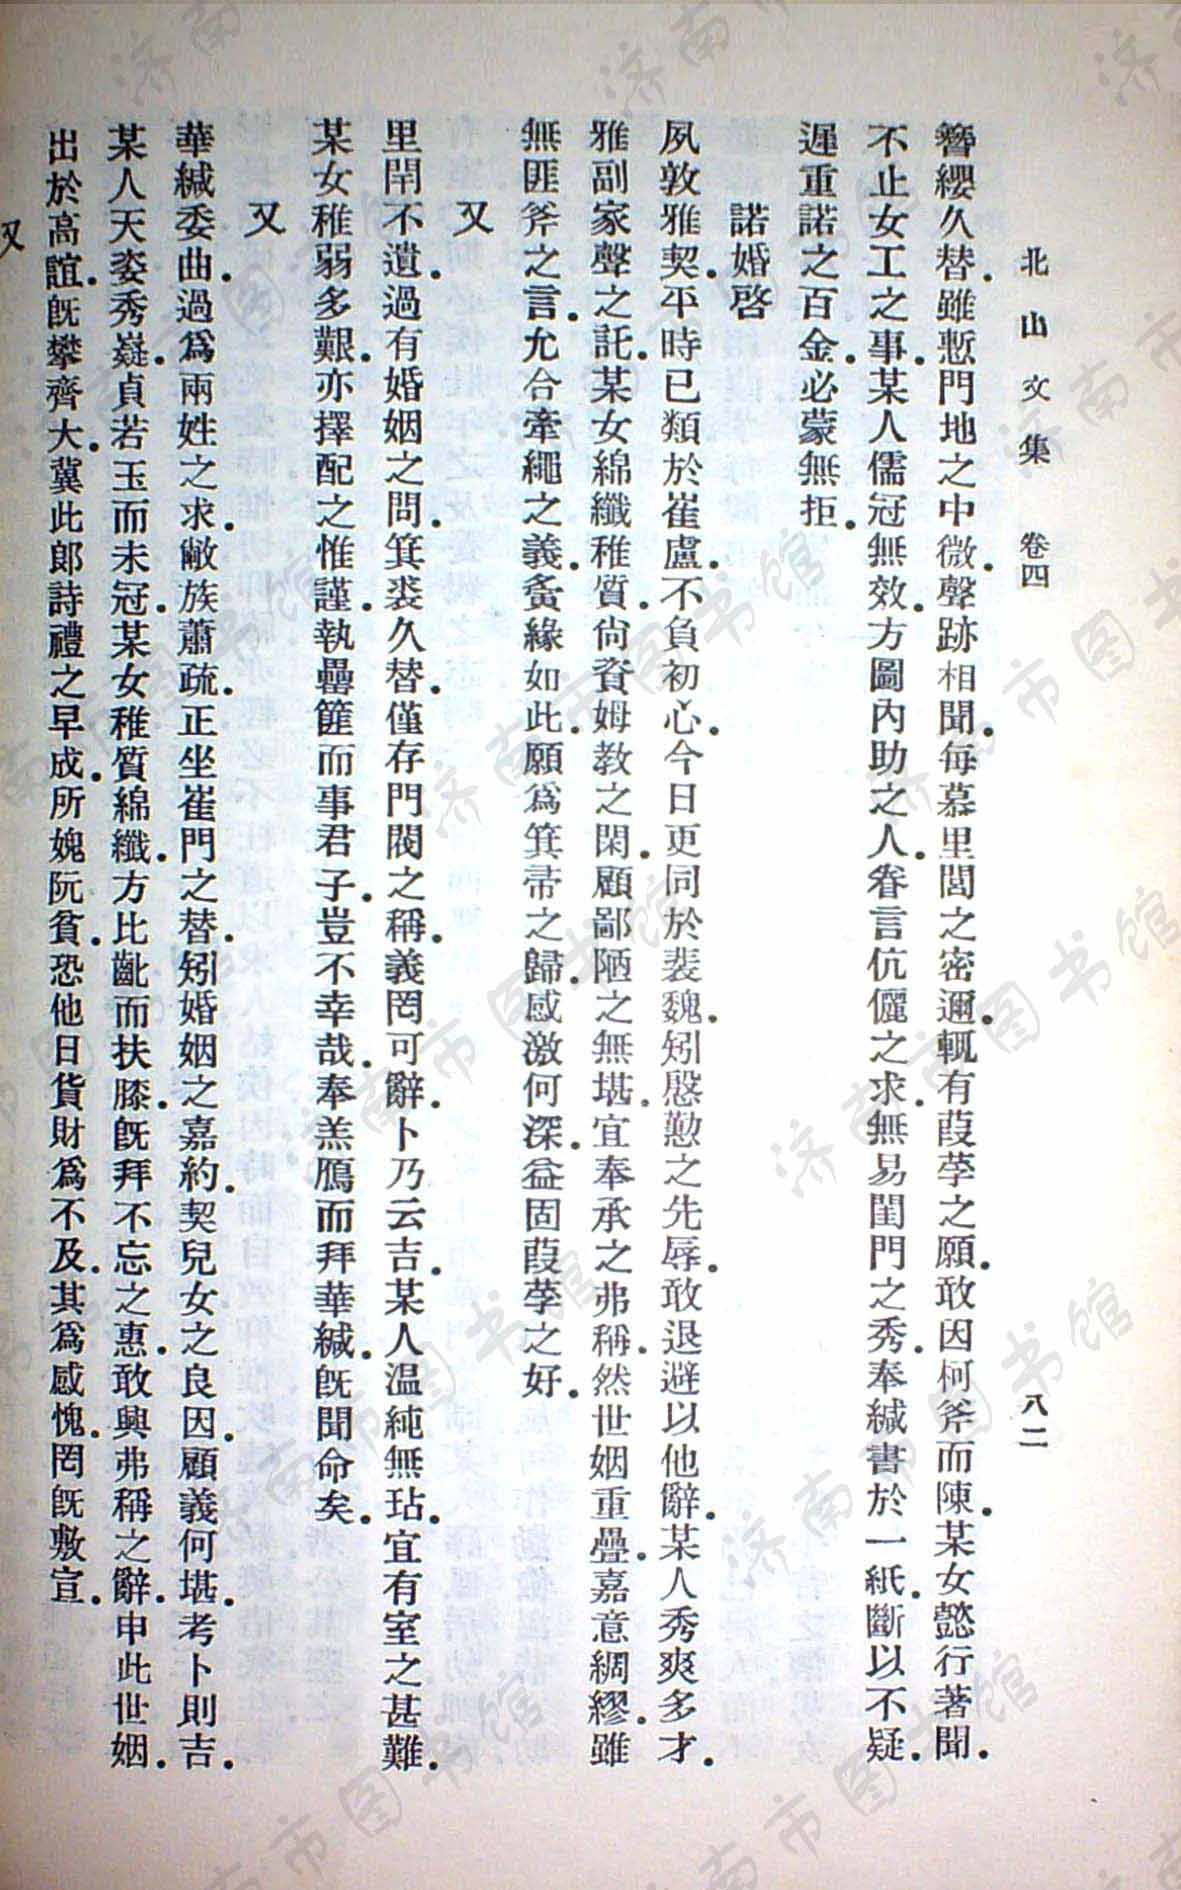 北山文集　卷四　八二
簪纓久替．雖慙門地之中微．聲跡相聞．每慕里閭之密邇．輒有葭莩之願．敢因柯斧而陳．某女懿行著聞．
不止女工之事．某人儒冠無效．方圖內助之人．眷言伉儷之求．無易閨門之秀．奉緘書於一紙．斷以不疑．
遲重諾之百金．必蒙無拒．
諾婚啓
夙敦雅契．平時已類於崔盧．不負初心．今日更同於裴魏．矧慇懃之先辱．敢退避以他辭．某人秀爽多才．
雅副家聲之託．某女綿纖稚質．尙資姆教之閑．顧鄙陋之無堪．宜奉承之弗稱．然世姻重疊．嘉意綢繆．雖
無匪斧之言．允合牽繩之義．夤緣如此．願爲箕帚之歸．感激何深．益固葭莩之好．
又
里閈不遺．過有婚姻之問．箕裘久替．僅存門閥之稱．義罔可辭．卜乃云吉．某人溫純無玷．宜有室之甚難．
某女稚弱多艱．亦擇配之惟謹．執罍篚而事君子．豈不幸哉．奉羔鴈而拜華緘．旣聞命矣．
又
華緘委曲．過爲兩姓之求．敝族蕭疏．正坐崔門之替．矧婚姻之嘉約．契兒女之良因．顧義何堪．考卜則吉．
某人天姿秀嶷．貞若玉而未冠．某女稚質綿纖．方比齔而扶膝．旣拜不忘之惠．敢興弗稱之辭．申此世姻．
出於高誼．旣攀齊大．冀此郎詩禮之早成．所媿阮貧．恐他日貨財爲不及．其爲感愧．罔旣敷宣．
又